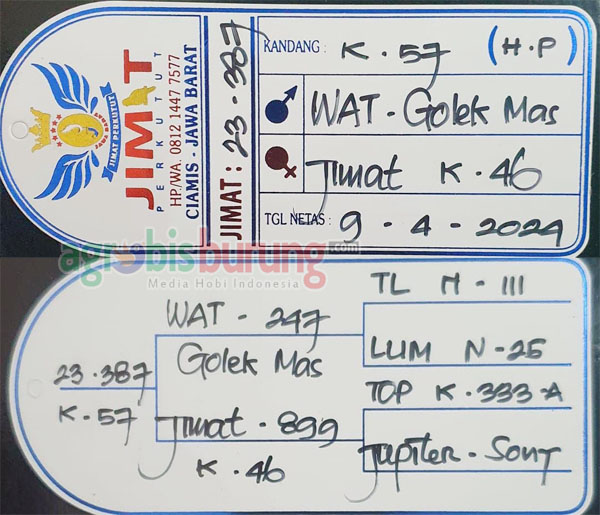 JIMAT PERKUTUT
JIMAT
PERKUTUT
HP/WA. 0812 1447 7577
CIAMIS - JAWA BARAT
JIMAT : 23 - 387
KANDANG : K. 57 (H.P)
WAT - Golek Mas
Jimat K. 46
TGL NETAS : 9 - 4 - 2024
agrobisburung.com
Media Hobi Indonesia
TL H - III
WAT - 247
LUM N - 25
Golek Mas
23.387
TOP K. 333 A
K. 57
Jimat - 899
Jupiter - Sony
K. 46